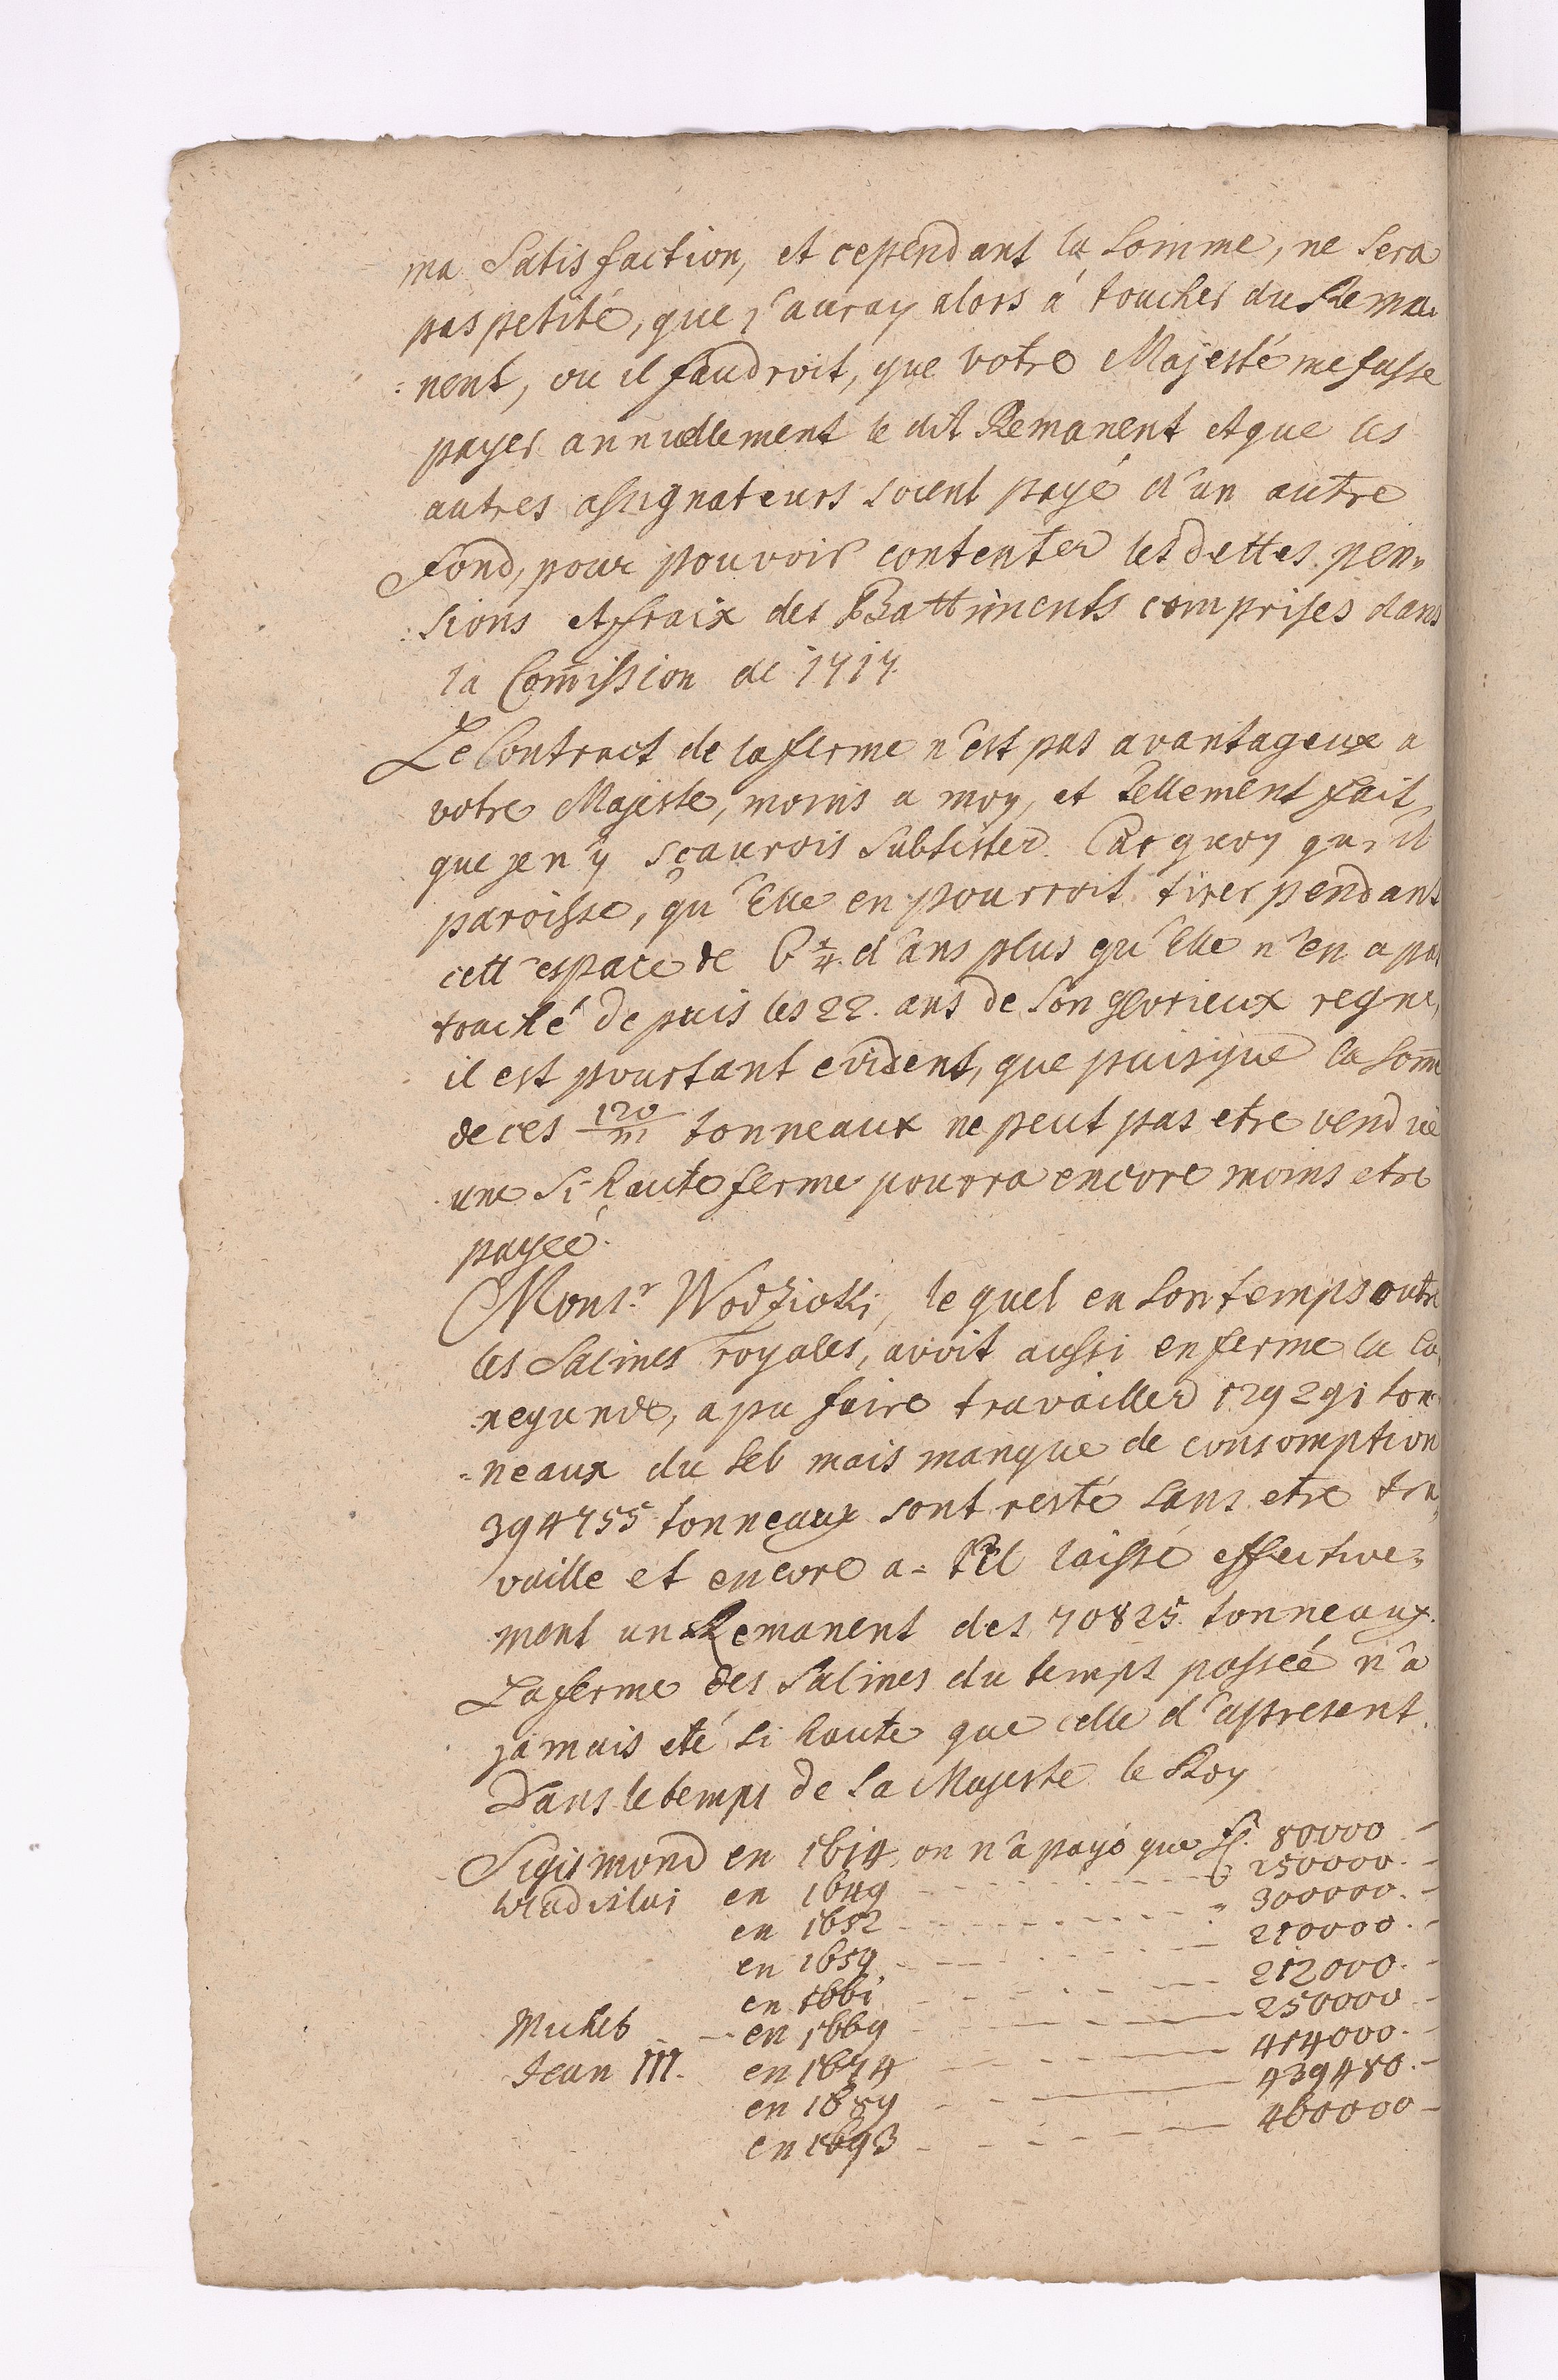 ma Satisfaction, et cependant la Somme, ne Sera
pas petite, que j'auray alors à toucher du Rema-
=nent, ou il faudroit, que votre Majesté me fasse
payer annuellement le dit Remanent et que les
autres assignateurs soient payé d'un autre
Fond, pour pouvoir contenter les dettes pen=
sions et fraix des Battiments comprises dans
la Com̃ission de 1717.
Le Contract de la ferme n'est pas avantageux a
votre Majesté, moins a moy, et tellement fait,
que je n'y sçaurois Subsister. Car quoy qu'il
paroisse, qu'Elle en pourroit tirer pendant
cett'espace de 6 1/4 d'ans plus qu'Elle n'en a pas
touché depuis les 22. ans de Son glorieux regne,
il est pourtant evident, que puisque la Som̃e
de ces 120/m tonneaux ne peut pas etre vendüe
une Si haute ferme pourra encore moins etre
payée.
Mons.r Wodzicki, le quel en Son temps outre
les Salines royales, avoit aussi en ferme la Co
negunde, a pu faire travailler 129291 ton
=neaux du Sel mais manque de consomption
394755 tonneaux sont resté Sans etre tra
vaille et encore a-t'il laissé effective=
ment un Remanent des 70825 tonneaux.
La ferme des Salines du temps passée n'a
jamais eté Si haute que celle d'apresent.
Dans le temps de Sa Majeste le Roy
Sigismond en 1614, on n'a payé que fl. 80000 -
Wladislas en 1649 - - - 250000. -
en 1652 - - - 300000. -
en 1659 - - - 210000. -
en 1661 - - - 212000. -
Michel - - en 1669 - - - 250000 -
Jean III. en 1674 - - - 414000. -
en 1689 - - - 439480. -
en 1693 - - - 460000 -